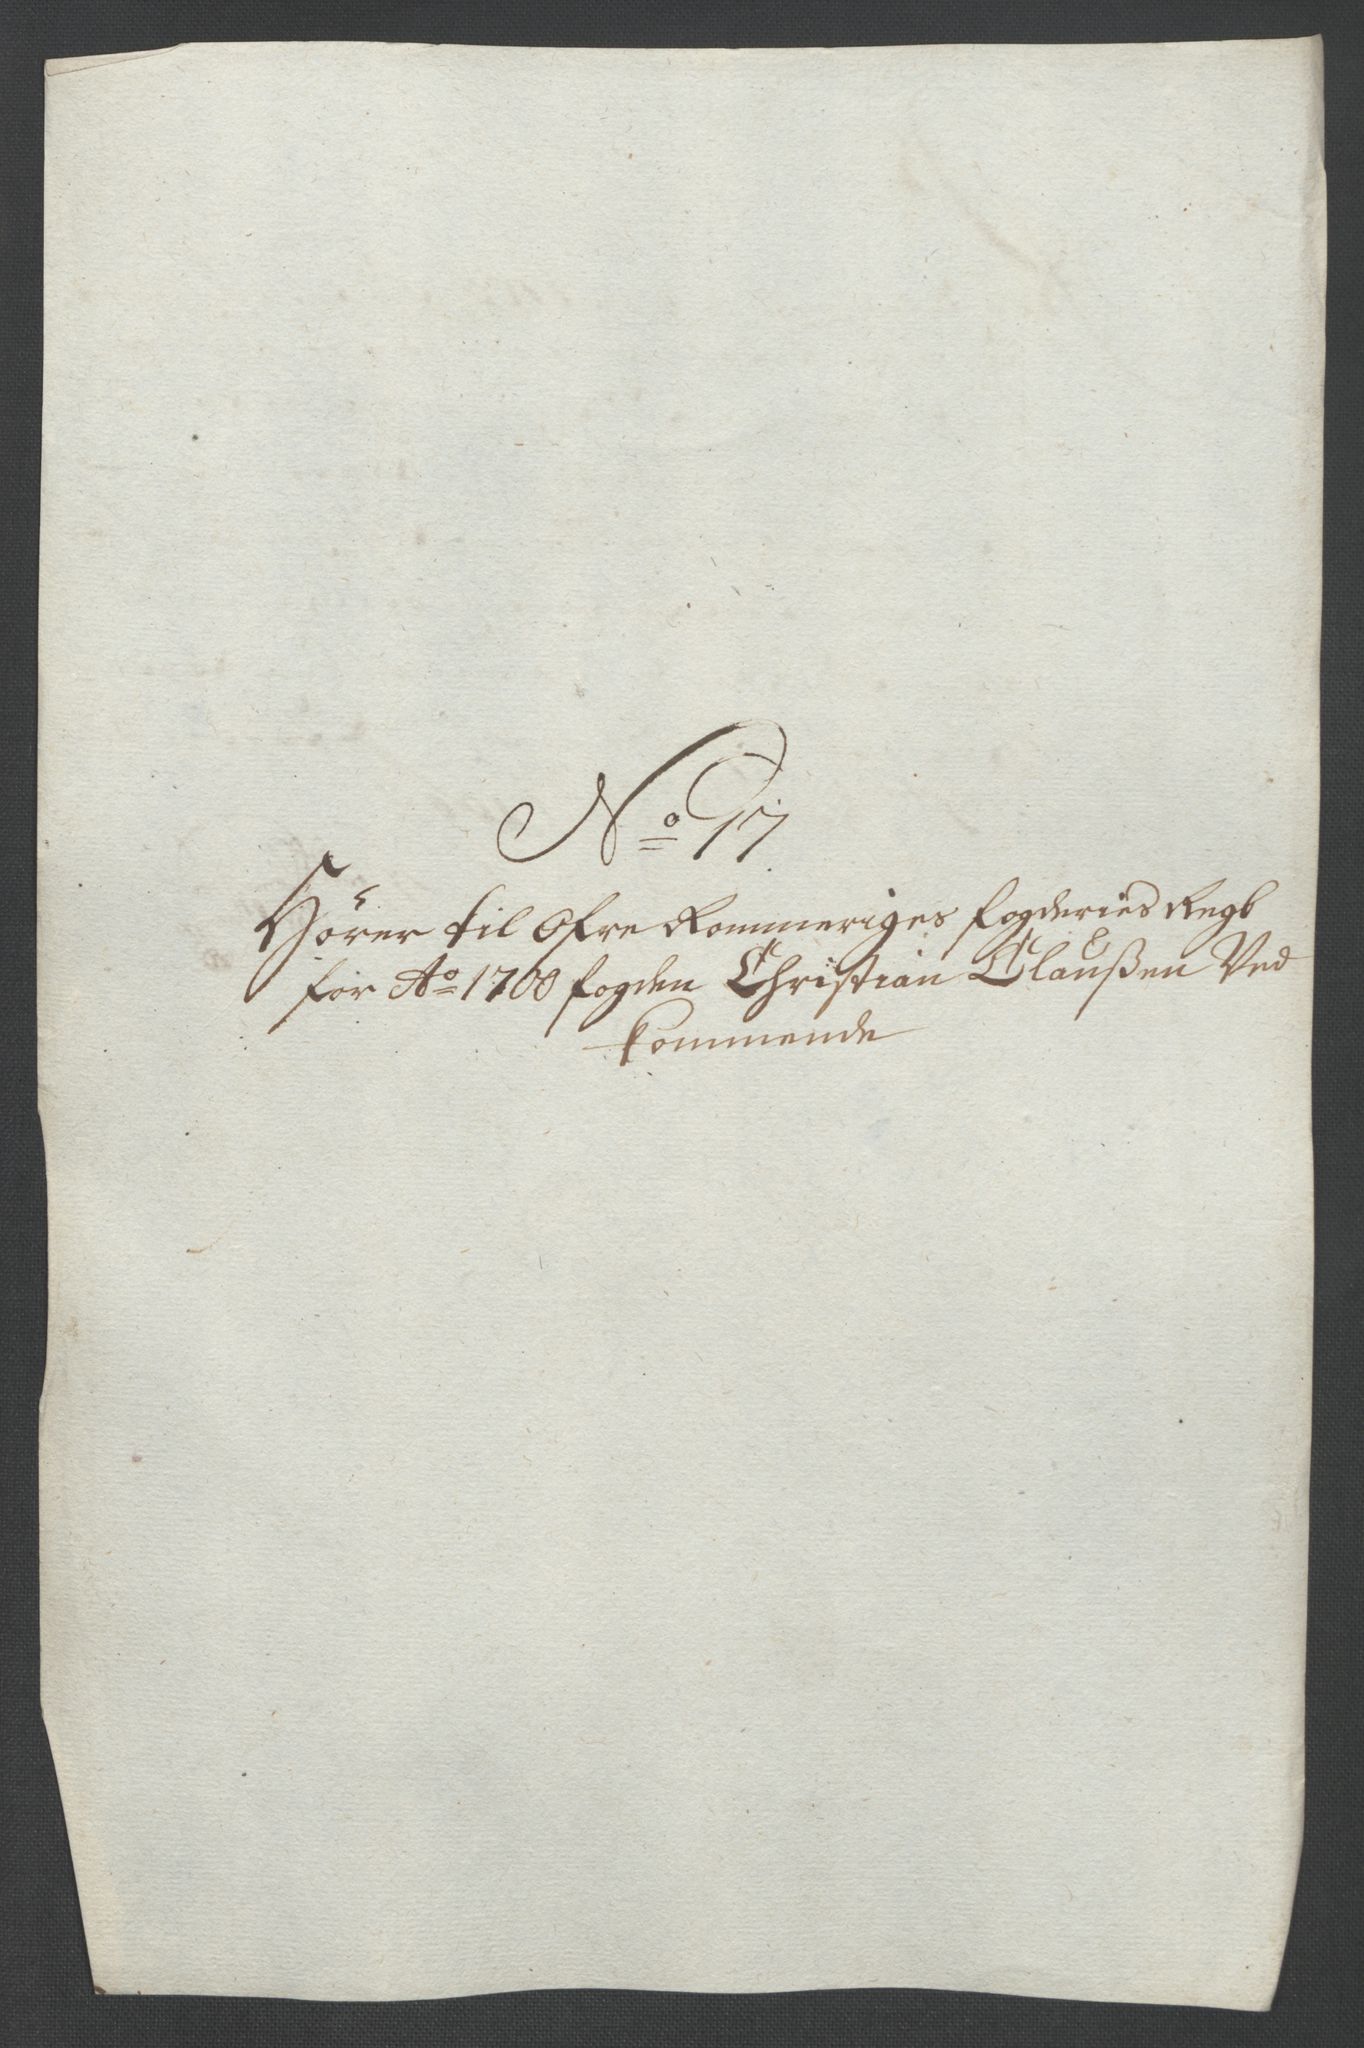 No 17
Hörer til Ofre Rommeriges fogderies Regb
for Ao 1700 fogden Christian Claußen Ved
kommende